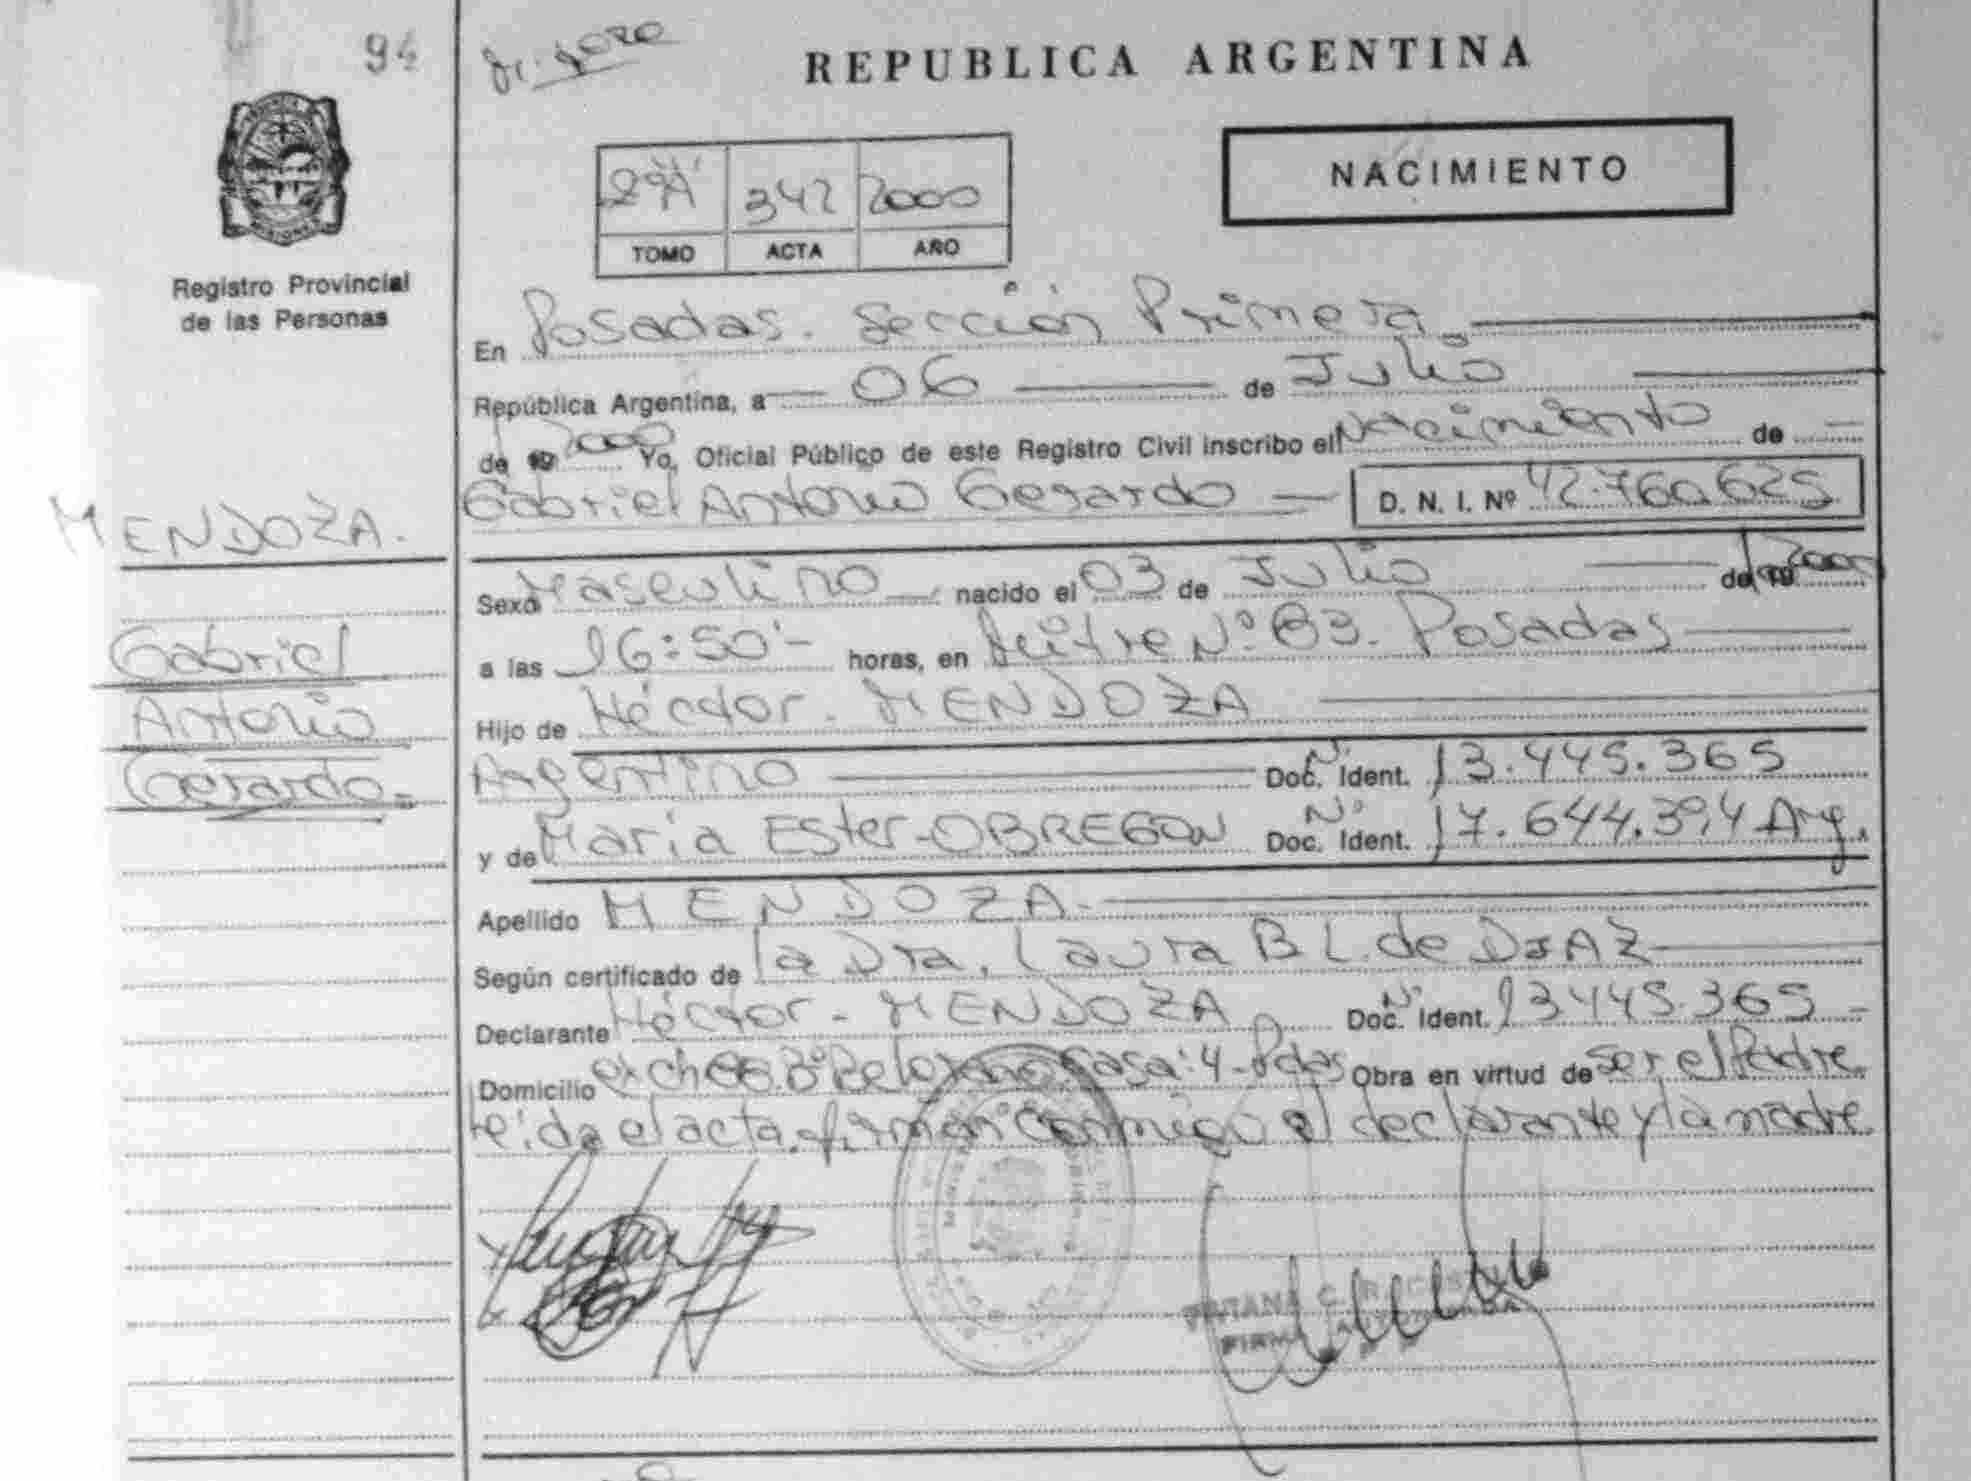 94
REPUBLICA ARGENTINA
NACIMIENTO
342 2000
TOMO ACTA AÑO
Registro Provincial
de las Personas
En Posadas. Sección Primera
República Argentina, a 06 de Julio
de 2000 Yo, Oficial Público de este Registro Civil inscribo el Nacimiento de
MENDOZA.
Gabriel Antonio Gerardo D. N. I. Nº 42.760.625
Sexo Masculino nacido el 03 de Julio de 2000
Gabriel
a las 16:50'- horas, en Mitre Nº 83. Posadas
Antonio
Hijo de Héctor. MENDOZA
Gerardo-
Argentino Doc. Nº Ident. 13.445.365
y de María Ester-OBREGON Doc. Nº Ident. 17.644.394 Arg.
Apellido MENDOZA.
Según certificado de la Dra. Laura B L. de DIAZ
Declarante Héctor - MENDOZA Doc. Nº Ident. 13445.365-
Domicilio Casa: 4- Pdas Obra en virtud de ser el Padre
leída el acta, firman conmigo el declarante y la madre.